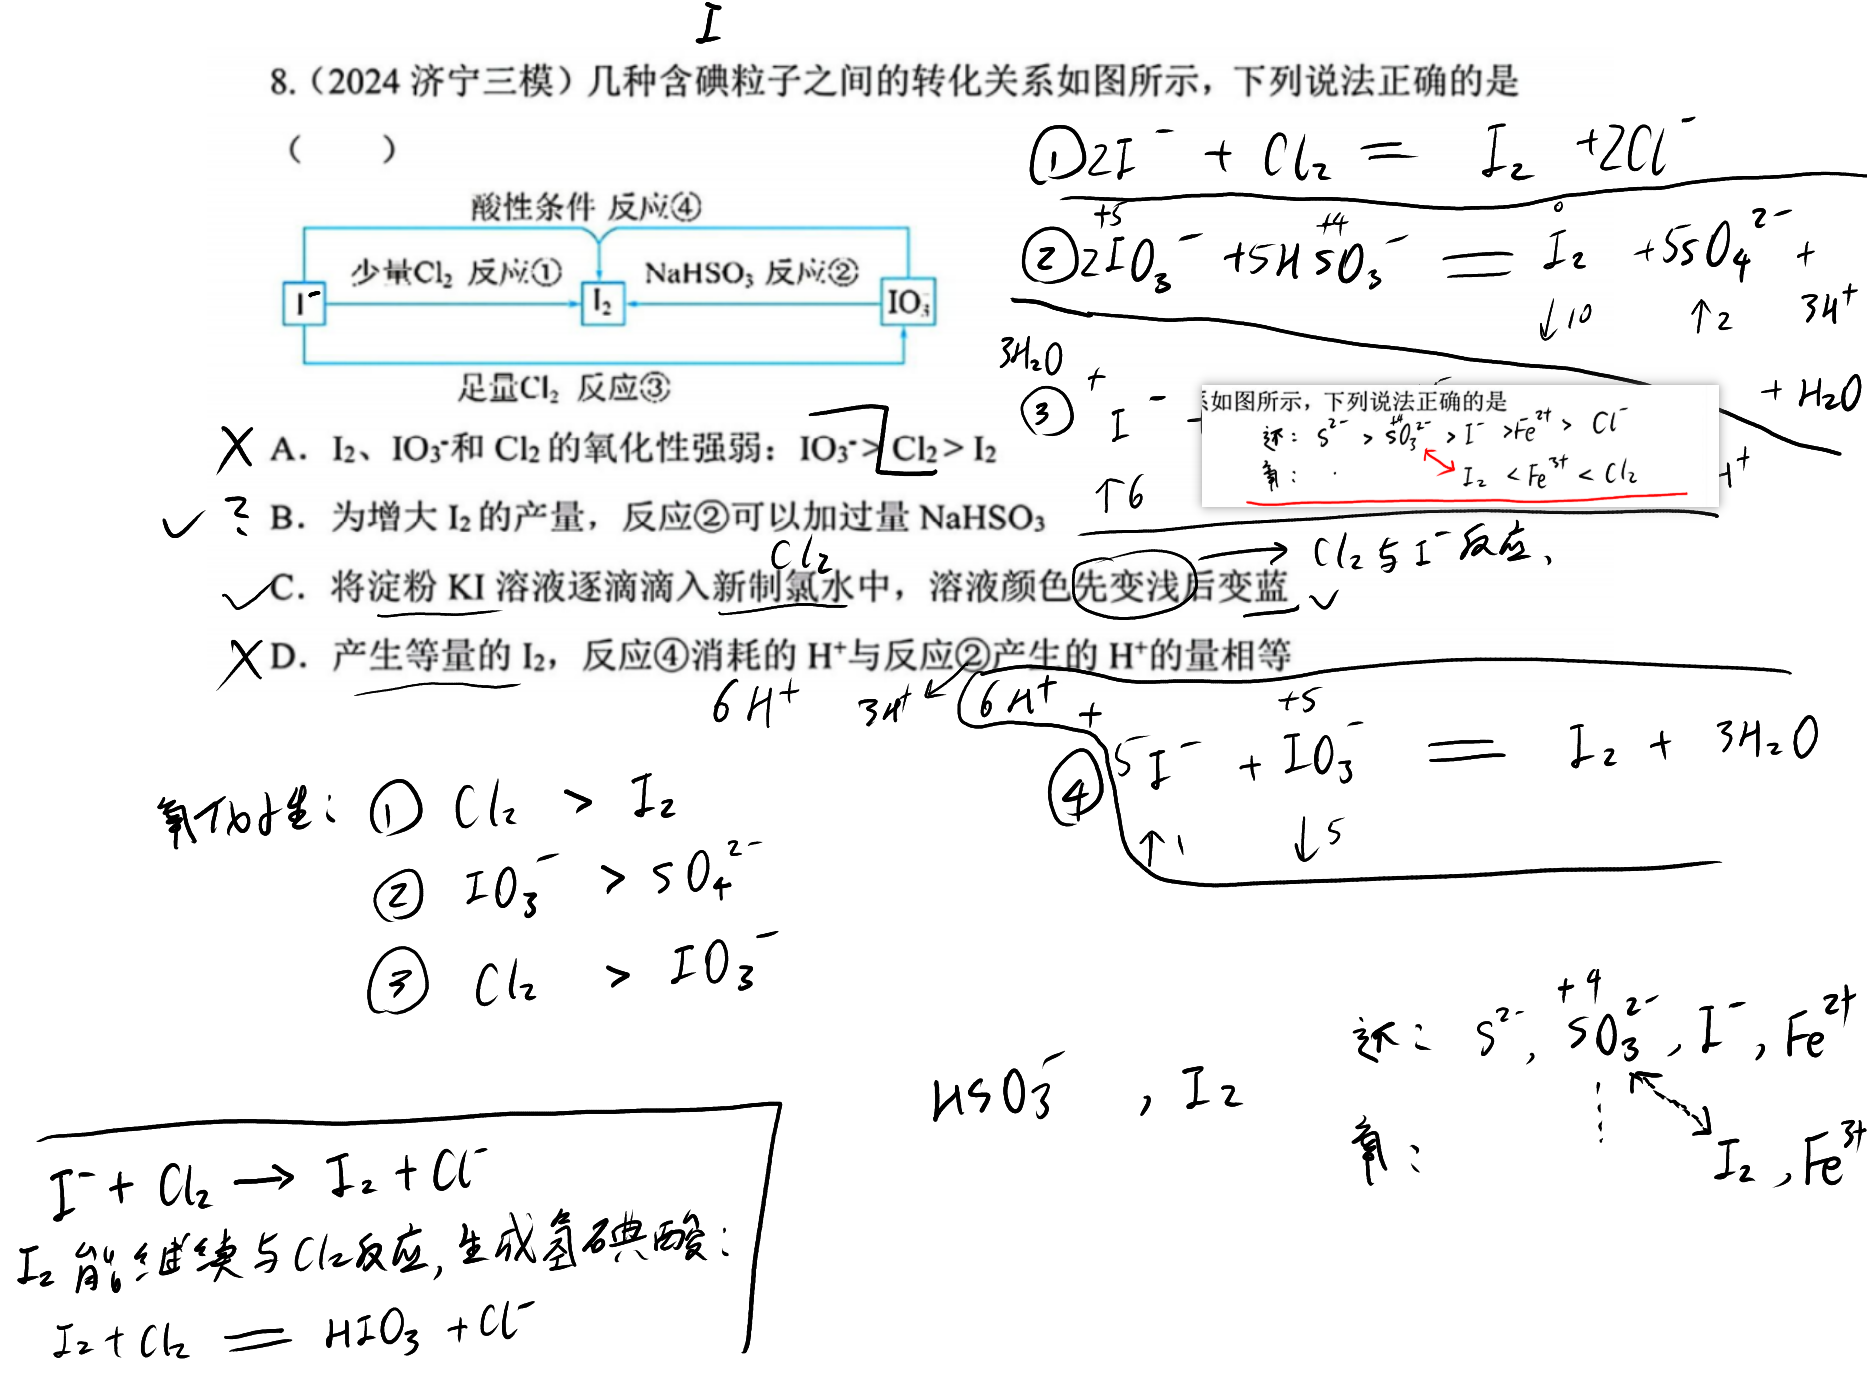 I
8.(2024 济宁三模)几种含碘粒子之间的转化关系如图所示，下列说法正确的是
(　　)
酸性条件 反应④
少量Cl₂ 反应①
NaHSO₃ 反应②
I⁻
I₂
IO₃⁻
足量Cl₂ 反应③
× A. I₂、IO₃⁻和 Cl₂ 的氧化性强弱：IO₃⁻> Cl₂ > I₂
✓ ? B. 为增大 I₂ 的产量，反应②可以加过量 NaHSO₃
Cl₂
✓ C. 将淀粉 KI 溶液逐滴滴入新制氯水中，溶液颜色先变浅后变蓝 ✓
→ Cl₂与I⁻反应,
× D. 产生等量的 I₂，反应④消耗的 H⁺与反应②产生的 H⁺的量相等
6H⁺ 3H⁺ ←
① 2I⁻ + Cl₂ = I₂ + 2Cl⁻
+5 +4 0
② 2IO₃⁻ + 5HSO₃⁻ = I₂ + 5SO₄²⁻ +
↓10 ↑2 3H⁺
+ H₂O
3H₂O +
③ I⁻
↑6
系如图所示，下列说法正确的是
还: S²⁻ > SO₃²⁻ > I⁻ > Fe²⁺ > Cl⁻
+4
氧: I₂ < Fe³⁺ < Cl₂
6H⁺ + +5
④ 5I⁻ + IO₃⁻ = I₂ + 3H₂O
↑1 ↓5
氧化性: ① Cl₂ > I₂
② IO₃⁻ > SO₄²⁻
③ Cl₂ > IO₃⁻
HSO₃⁻ , I₂
+4
还: S²⁻, SO₃²⁻, I⁻, Fe²⁺
氧: I₂, Fe³⁺
I⁻ + Cl₂ → I₂ + Cl⁻
I₂ 能继续与Cl₂反应, 生成氢碘酸:
I₂ + Cl₂ = HIO₃ + Cl⁻